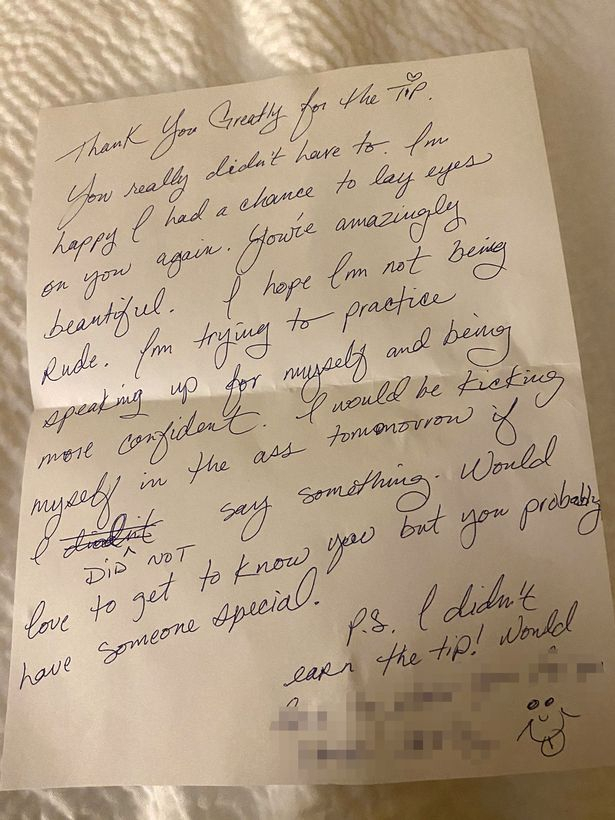 Thank You Greatly for the Tip.
You really didn't have to. I'm
happy I had a chance to lay eyes
on you again. You're amazingly
beautiful. I hope I'm not being
Rude. I'm trying to practice
speaking up for myself and being
more confident. I would be kicking
myself in the ass tomonorrow if
I didn't say something. Would
DID NOT
love to get to know you but you probably
have someone special.
P.S. I didn't
earn the tip! Would